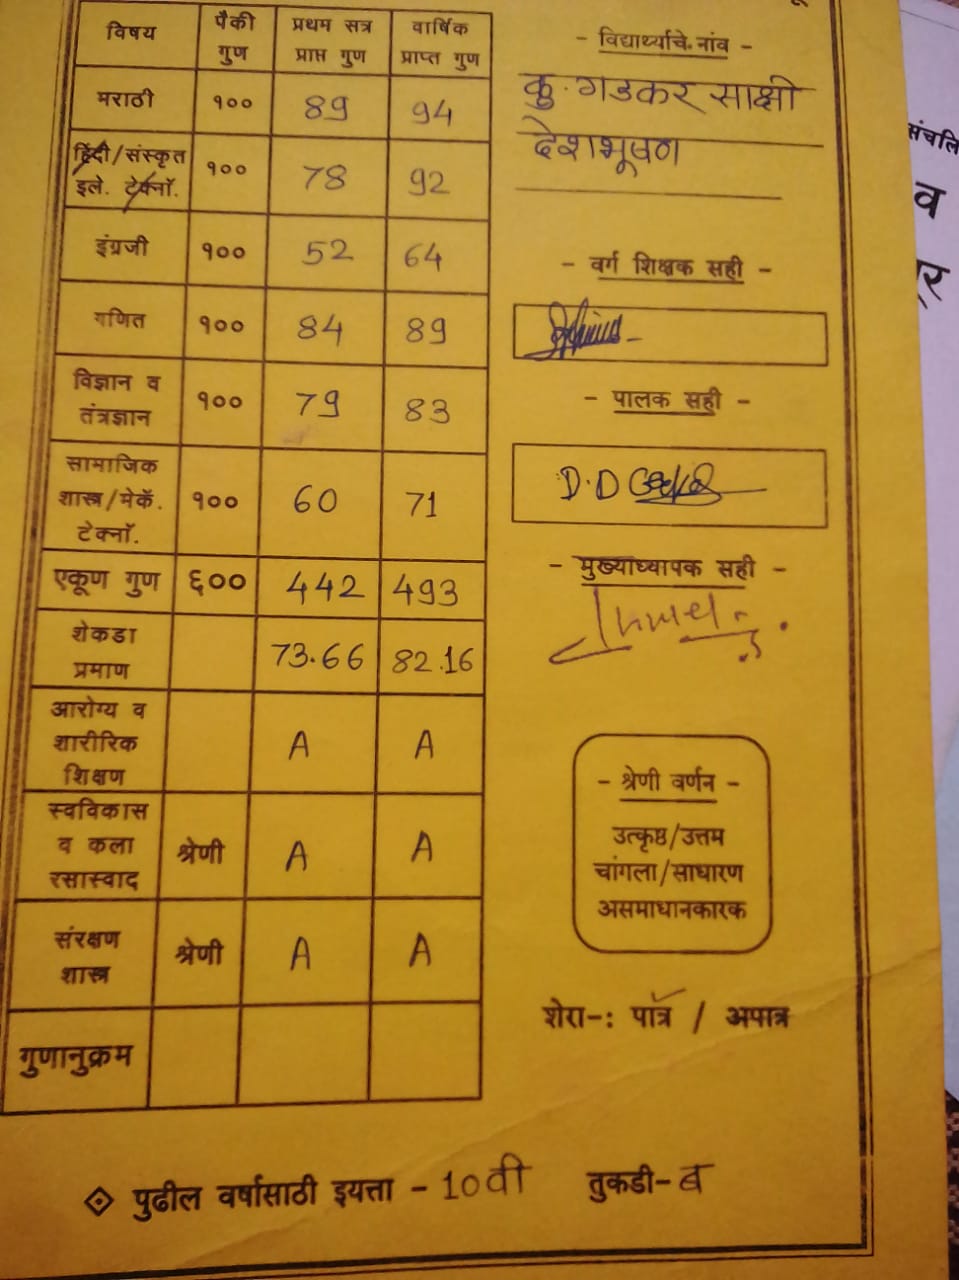 विषय पैकी गुण प्रथम सत्र प्राप्त गुण वार्षिक प्राप्त गुण
मराठी १०० 89 94
हिंदी/संस्कृत इले. टेक्नॉ. १०० 78 92
इंग्रजी १०० 52 64
गणित १०० 84 89
विज्ञान व तंत्रज्ञान १०० 79 83
सामाजिक शास्त्र/मेकॅ. टेक्नॉ. १०० 60 71
एकूण गुण ६०० 442 493
शेकडा प्रमाण 73.66 82.16
आरोग्य व शारीरिक शिक्षण A A
स्वविकास व कला रसास्वाद श्रेणी A A
संरक्षण शास्त्र श्रेणी A A
गुणानुक्रम
- विद्यार्थ्याचे नांव -
कु. गडकर साक्षी
देशभूषण
- वर्ग शिक्षक सही -
- पालक सही -
D.D
- मुख्याध्यापक सही -
- श्रेणी वर्णन -
उत्कृष्ठ/उत्तम
चांगला/साधारण
असमाधानकारक
शेरा-: पात्र / अपात्र
पुढील वर्षासाठी इयत्ता - 10वी तुकडी-ब
संचलि
व